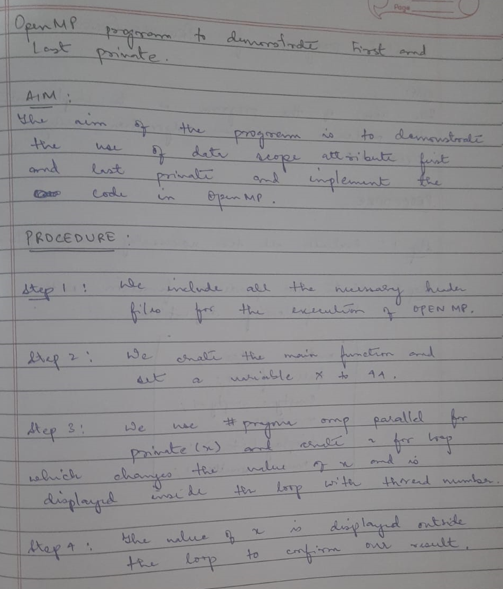 Page
OpenMP program to demonstrate first and
Last private.
AIM :
The aim of the program is to demonstrate
the use of data scope attribute first
and last private and implement the
code in OpenMP.
PROCEDURE :
Step 1 : We include all the necessary header
files for the execution of OPEN MP.
Step 2 : We create the main function and
set a variable x to 44.
Step 3 : We use #pragma omp parallel for
private (x) and create a for loop
which changes the value of x and is
displayed inside the loop with thread number.
Step 4 : The value of x is displayed outside
the loop to confirm our result.